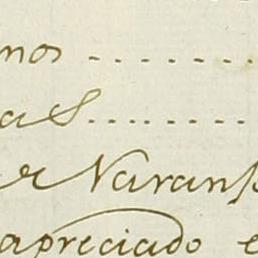 nos ........
as ........
de Naranj
apreciado e